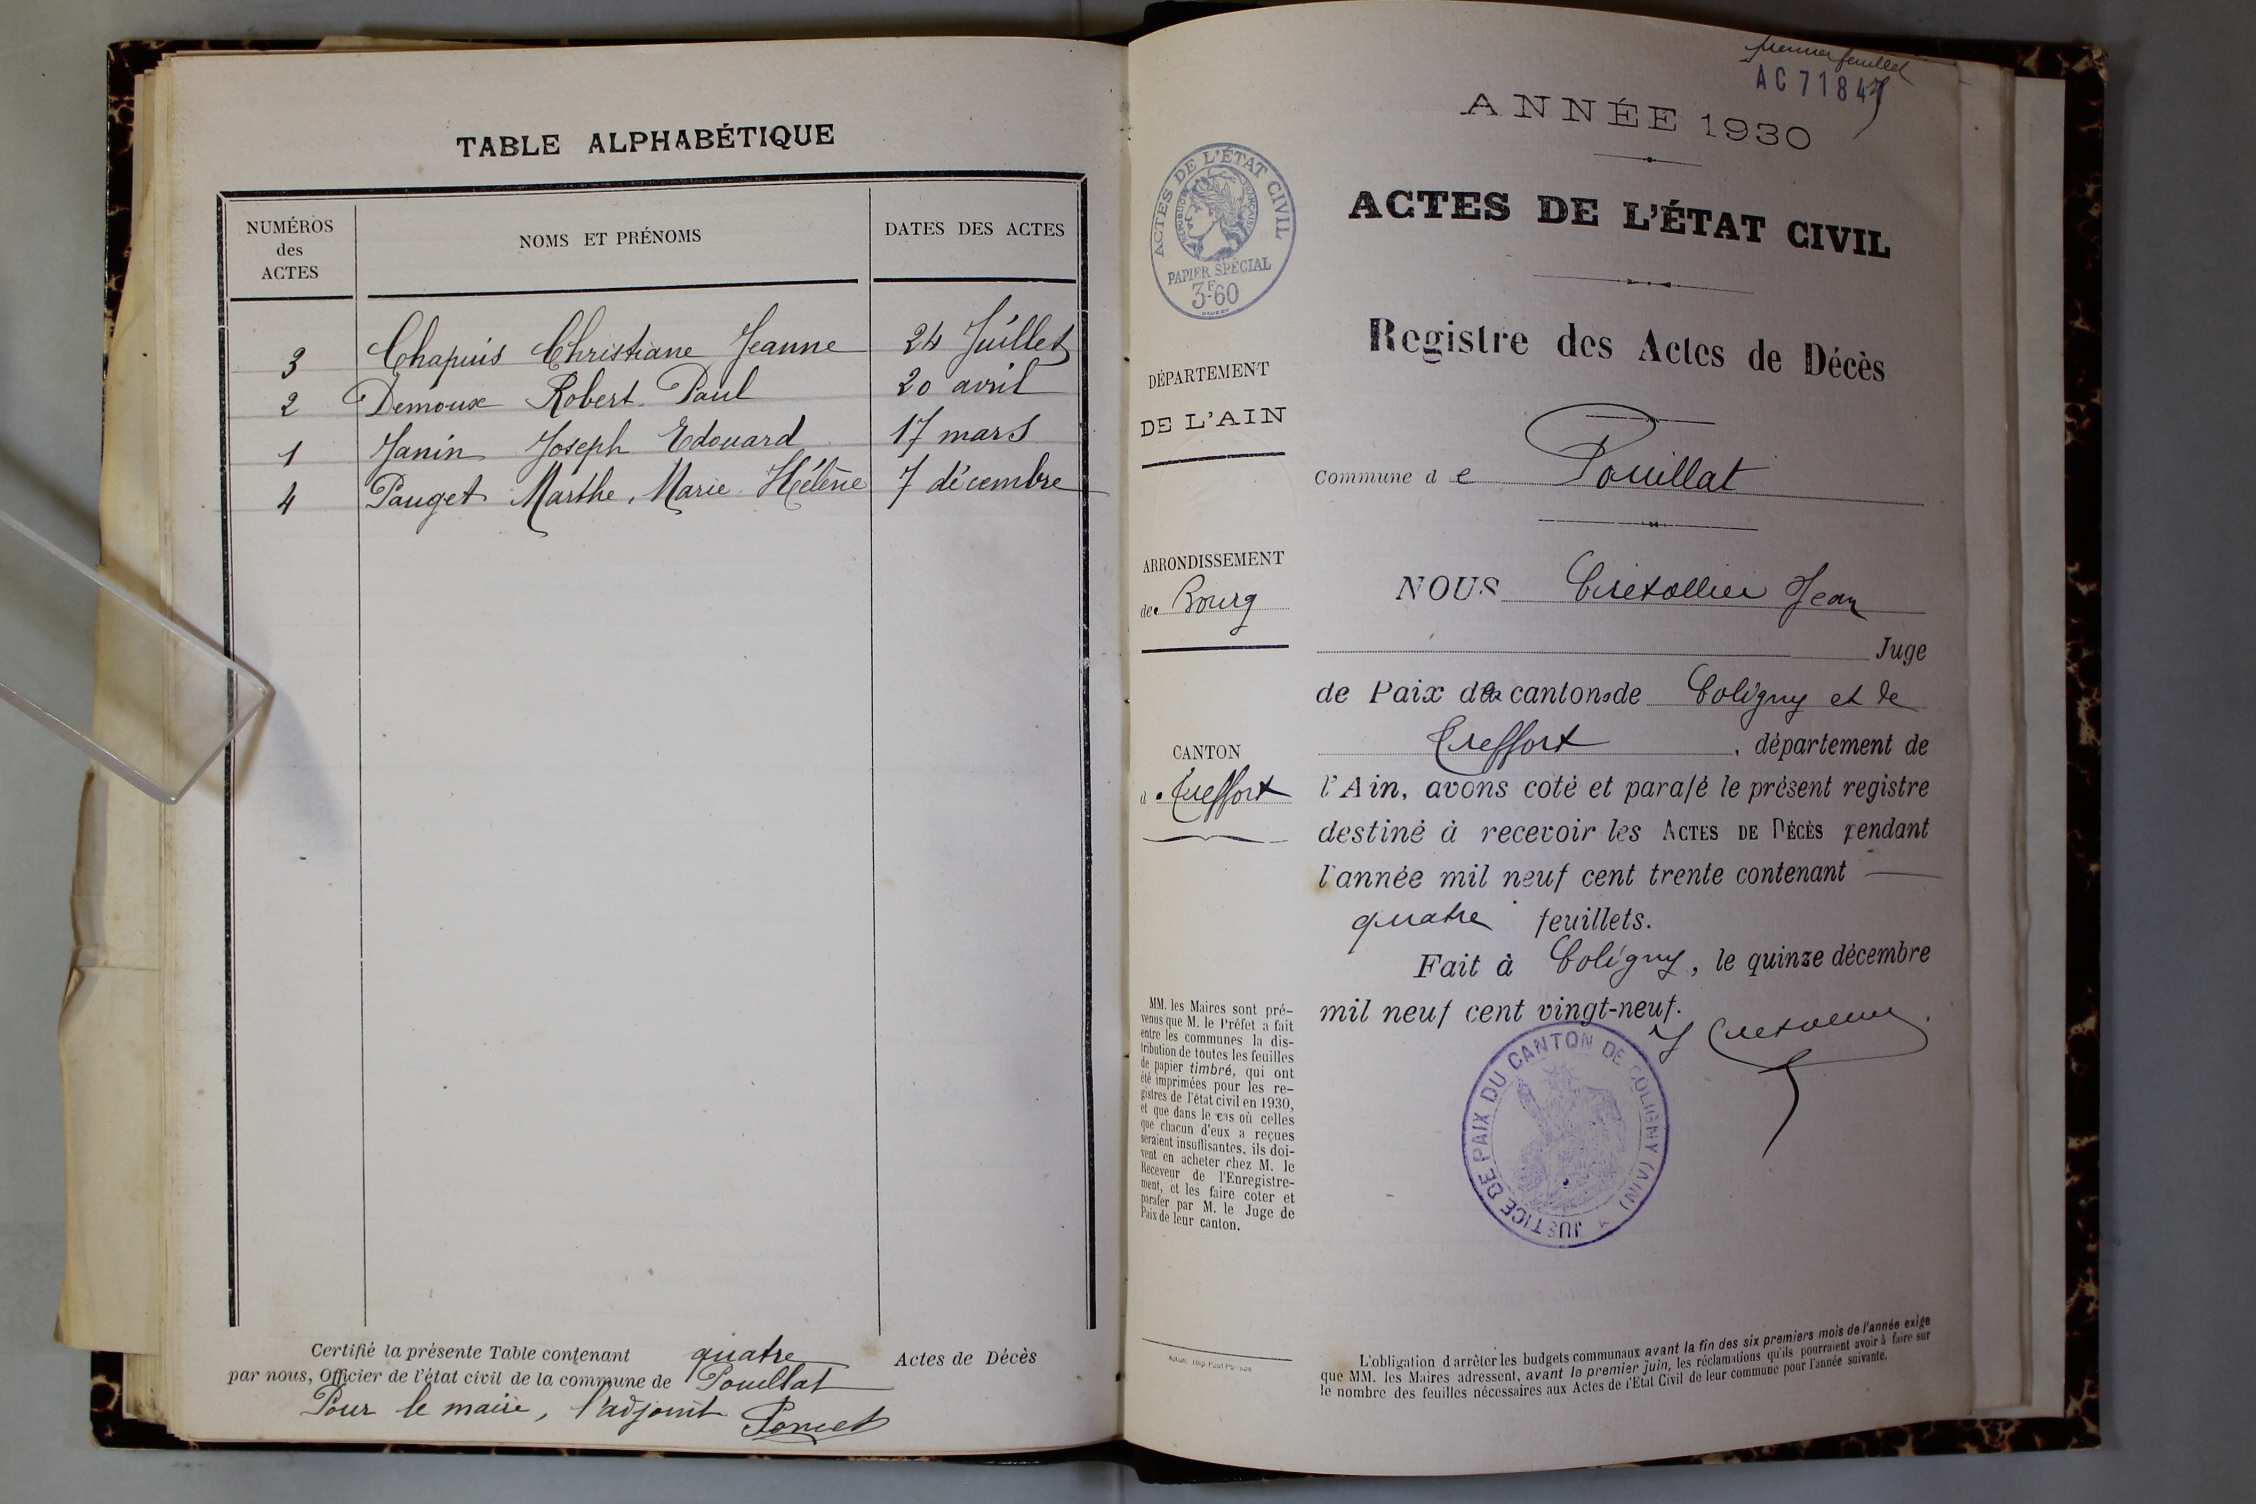 TABLE ALPHABÉTIQUE
NUMÉROS
des
ACTES
NOMS ET PRÉNOMS
DATES DES ACTES
3 Chapuis Christiane Jeanne 24 Juillet
2 Demoux Robert Paul 20 avril
1 Janin Joseph Edouard 17 mars
4 Pauget Marthe, Marie Hélène 7 décembre
Certifié la présente Table contenant quatre Actes de Décès
par nous, Officier de l'état civil de la commune de Pouillat
Pour le maire, l'adjoint Poncet
premier feuillet
AC 7184
ANNÉE 1930
ACTES DE L'ÉTAT CIVIL
RÉPUBLIQUE FRANÇAISE
PAPIER SPÉCIAL
3F60
ACTES DE L'ÉTAT CIVIL
Registre des Actes de Décès
DÉPARTEMENT
DE L'AIN
Commune de Pouillat
ARRONDISSEMENT
de Bourg
CANTON
d Treffort
NOUS Jean
Juge
de Paix des cantons de Coligny et de
Treffort, département de
l'Ain, avons coté et parafé le présent registre
destiné à recevoir les ACTES DE DÉCÈS pendant
l'année mil neuf cent trente contenant
quatre feuillets.
Fait à Coligny, le quinze décembre
mil neuf cent vingt-neuf.
JUSTICE DE PAIX DU CANTON DE COLIGNY (AIN)
MM. les Maires sont pré-
venus que M. le Préfet a fait
entre les communes la dis-
tribution de toutes les feuilles
de papier timbré, qui ont
été imprimées pour les re-
gistres de l'état civil en 1930,
et que dans le cas où celles
que chacun d'eux a reçues
seraient insuffisantes, ils doi-
vent en acheter chez M. le
Receveur de l'Enregistre-
ment, et les faire coter et
parafer par M. le Juge de
Paix de leur canton.
L'obligation d'arrêter les budgets communaux avant la fin des six premiers mois de l'année exige
que MM. les Maires adressent, avant le premier juin, les réclamations qu'ils pourraient avoir à faire sur
le nombre des feuilles nécessaires aux Actes de l'État Civil de leur commune pour l'année suivante.